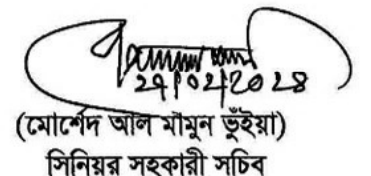 ২৭/০২/২০২৪
(মোর্শেদ আল মামুন ভূঁইয়া)
সিনিয়র সহকারী সচিব